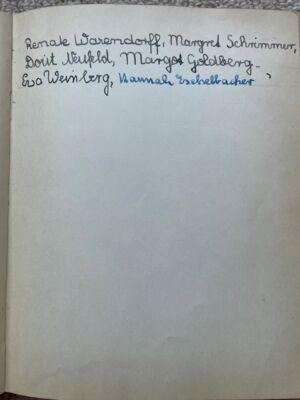 Renate Warendorff, Margret Schrimmer,
Dorit Neufeld, Margot Goldberg-
Eva Weinberg, Hannah Eschelbacher,